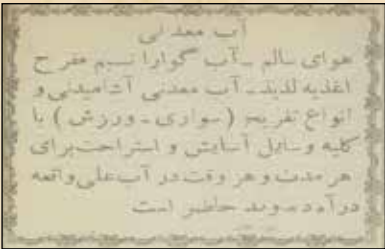 آب معدنی
هوای سالم ـ آب گوارا نسیم مفرح
اغذیه لذیذ ـ آب معدنی آشامیدنی و
انواع تفریح (سواری ـ ورزش) با
کلیه وسایل آسایش و استراحت برای
هر مدت و هر وقت در آب علی واقعه
در آ دماوند حاضر است